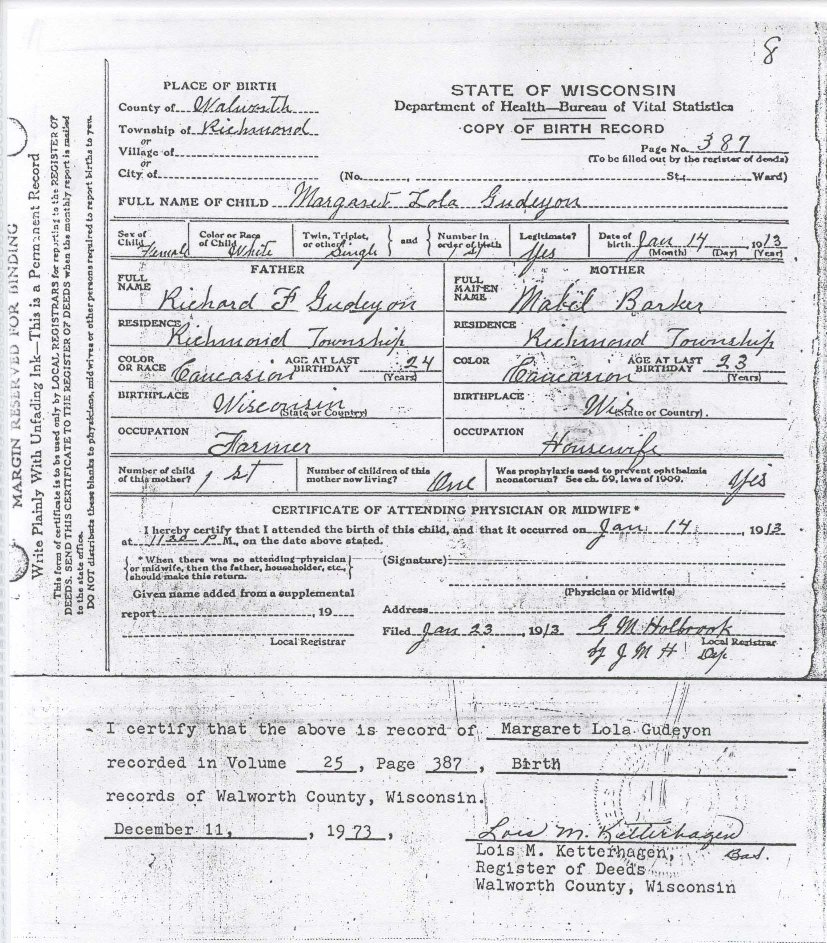 8
PLACE OF BIRTH
County of Walworth
Township of Richmond
or
Village of
or
City of
STATE OF WISCONSIN
Department of Health—Bureau of Vital Statistics
COPY OF BIRTH RECORD
Page No. 387
(To be filled out by the register of deeds)
(No. , St.; Ward)
FULL NAME OF CHILD Margaret Lola Gudeyon
Sex of Child Female
Color or Race of Child White
Twin, Triplet, or other? Single
and
Number in order of birth 1st
Legitimate? Yes
Date of birth Jan 14, 1913
(Month) (Day) (Year)
FATHER
FULL NAME Richard F Gudeyon
RESIDENCE Richmond Township
COLOR OR RACE Caucasion AGE AT LAST BIRTHDAY 24
(Years)
BIRTHPLACE Wisconsin
(State or Country)
OCCUPATION Farmer
MOTHER
FULL MAIDEN NAME Mabel Barker
RESIDENCE Richmond Township
COLOR Caucasion AGE AT LAST BIRTHDAY 23
(Years)
BIRTHPLACE Wis
(State or Country).
OCCUPATION Housewife
Number of child of this mother? 1st
Number of children of this mother now living? One
Was prophylaxis used to prevent ophthalmia neonatorum? See ch. 59, laws of 1909. Yes
CERTIFICATE OF ATTENDING PHYSICIAN OR MIDWIFE *
I hereby certify that I attended the birth of this child, and that it occurred on Jan 14, 1913
at 1130 P M., on the date above stated.
* When there was no attending physician
or midwife, then the father, householder, etc.,
should make this return.
(Signature)
(Physician or Midwife)
Given name added from a supplemental
report , 19
Local Registrar
Address
Filed Jan 23, 1913 G M Holbrook
Local Registrar
by J M H Dep
MARGIN RESERVED FOR BINDING
Write Plainly With Unfading Ink—This is a Permanent Record
This form of certificate is to be used only by LOCAL REGISTRARS for reporting to the REGISTER OF
DEEDS. SEND THIS CERTIFICATE TO THE REGISTER OF DEEDS when the monthly report is mailed
to the state office.
DO NOT distribute these blanks to physicians, midwives or other persons required to report births to you.
I certify that the above is record of Margaret Lola Gudeyon
recorded in Volume 25, Page 387, Birth
records of Walworth County, Wisconsin.
December 11, , 1973,
Lois M. Ketterhagen
Lois M. Ketterhagen,
Register of Deeds
Walworth County, Wisconsin